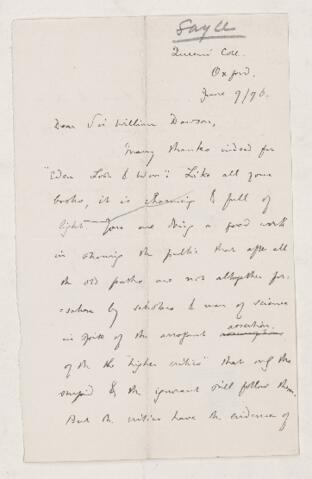 Sayce
Queens' Coll.
Oxford.
June 9/96.
Dear Sir William Dawson,
Many thanks indeed for
"Eden Lost & Won". Like all your
books, it is charming & full of
light. You are doing a good work
in showing the public that after all
the old paths are not altogether for-
saken by scholars & men of science
in spite of the arrogant assertion
of the "higher critics" that only the
stupid & the ignorant still follow them.
But the critics have the evidence of